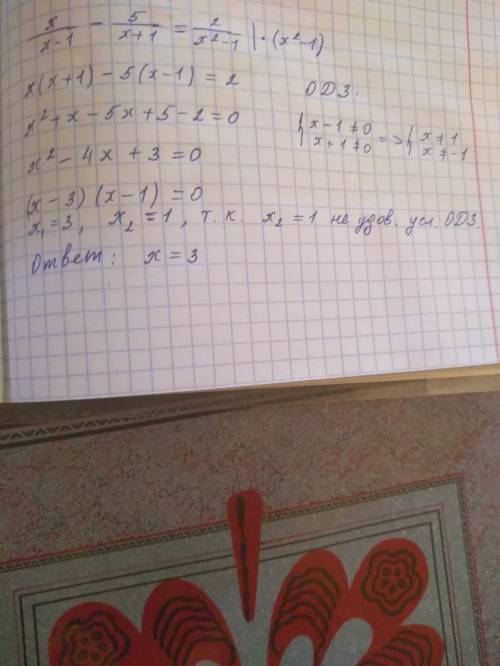 x/(x-1) - 5/(x+1) = 2/(x²-1) | · (x²-1)
x(x+1) - 5(x-1) = 2
ОДЗ:
x² + x - 5x + 5 - 2 = 0
{ x-1 ≠ 0 x+1 ≠ 0 => { x ≠ 1 x ≠ -1
x² - 4x + 3 = 0
(x-3)(x-1) = 0
x₁ = 3, x₂ = 1, т.к. x₂ = 1 не удов. усл. ОДЗ.
Ответ: x = 3